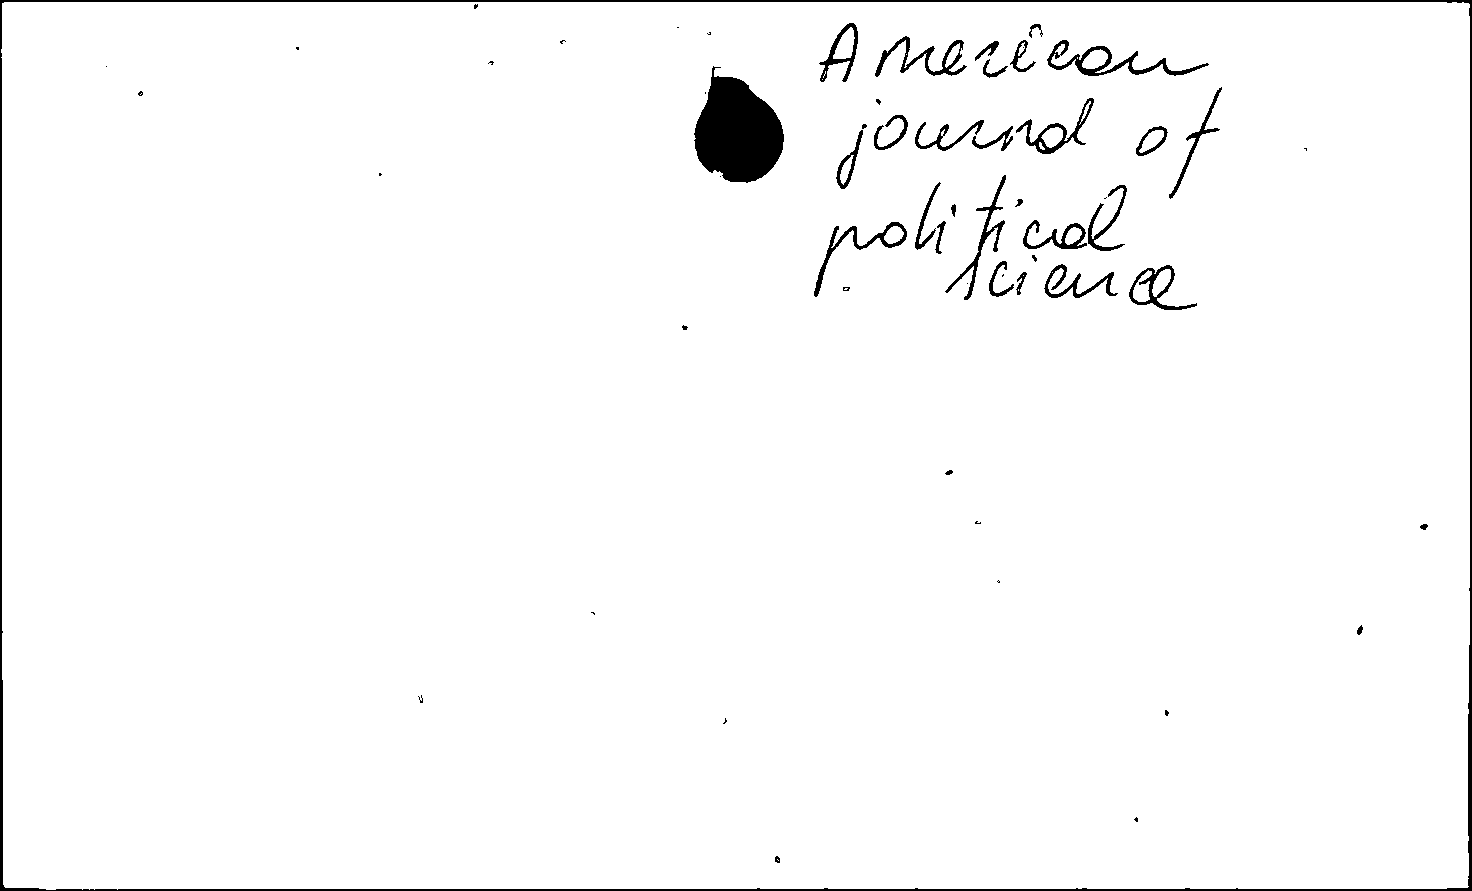 American
journal of
political
science